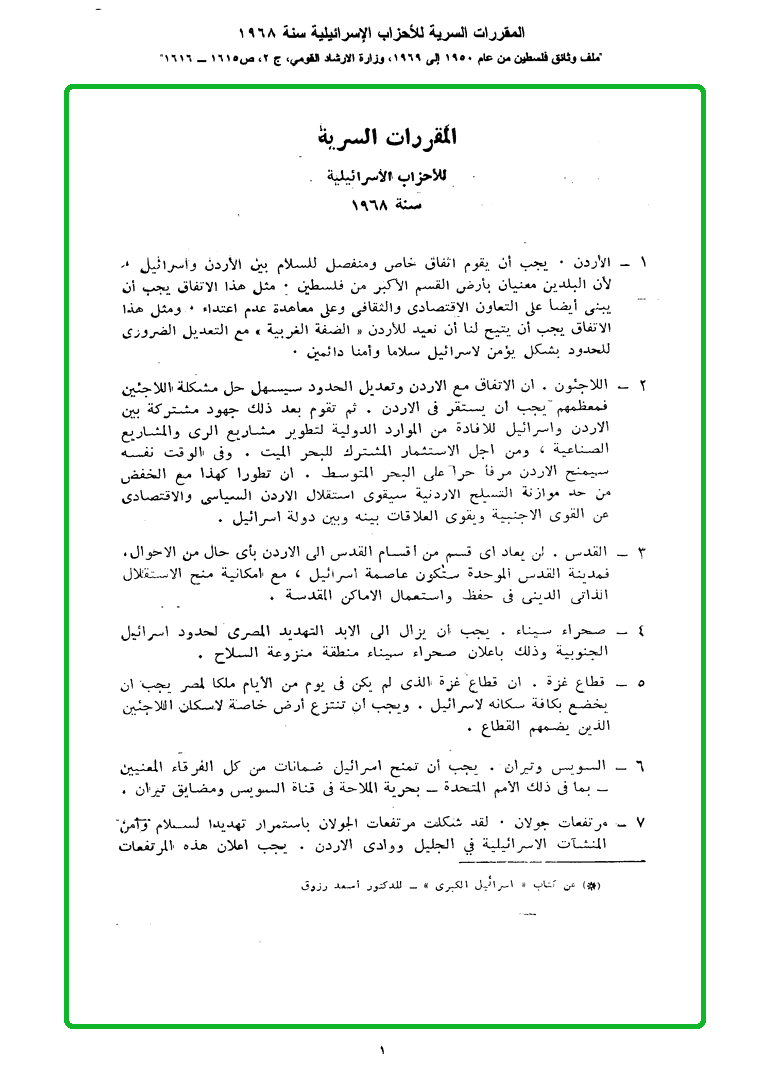 المقررات السرية للأحزاب الإسرائيلية سنة ١٩٦٨
"ملف وثائق فلسطين من عام ١٩٥٠ إلى ١٩٦٩، وزارة الارشاد القومي، ج ٢، ص١٦١٥ ــ ١٦١٦"
المقررات السرية
للأحزاب الأسرائيلية
سنة ١٩٦٨
١ ــ الأردن . يجب أن يقوم اتفاق خاص ومنفصل للسلام بين الأردن واسرائيل
لأن البلدين معنيان بأرض القسم الأكبر من فلسطين . مثل هذا الاتفاق يجب أن
يبنى أيضا على التعاون الاقتصادى والثقافى وعلى معاهدة عدم اعتداء . ومثل هذا
الاتفاق يجب أن يتيح لنا أن نعيد للأردن « الضفة الغربية » مع التعديل الضرورى
للحدود بشكل يؤمن لاسرائيل سلاما وأمنا دائمين .
٢ ــ اللاجئون . ان الاتفاق مع الاردن وتعديل الحدود سيسهل حل مشكلة اللاجئين
فمعظمهم يجب أن يستقر فى الاردن . ثم تقوم بعد ذلك جهود مشتركة بين
الاردن واسرائيل للافادة من الموارد الدولية لتطوير مشاريع الرى والمشاريع
الصناعية ، ومن اجل الاستثمار المشترك للبحر الميت . وفى الوقت نفسه
سيمنح الاردن مرفأ حرا على البحر المتوسط . ان تطورا كهذا مع الخفض
من حد موازنة التسلح الاردنية سيقوى استقلال الاردن السياسى والاقتصادى
عن القوى الاجنبية ويقوى العلاقات بينه وبين دولة اسرائيل .
٣ ــ القدس . لن يعاد اى قسم من أقسام القدس الى الاردن بأى حال من الاحوال،
فمدينة القدس الموحدة ستكون عاصمة اسرائيل ، مع امكانية منح الاستقلال
الذاتى الدينى فى حفظ واستعمال الاماكن المقدسة .
٤ ــ صحراء سيناء . يجب أن يزال الى الابد التهديد المصرى لحدود اسرائيل
الجنوبية وذلك باعلان صحراء سيناء منطقة منزوعة السلاح .
٥ ــ قطاع غزة . ان قطاع غزة الذى لم يكن فى يوم من الأيام ملكا لمصر يجب ان
يخضع بكافة سكانه لاسرائيل . ويجب أن تنتزع أرض خاصة لاسكان اللاجئين
الذين يضمهم القطاع .
٦ ــ السويس وتيران . يجب أن تمنح اسرائيل ضمانات من كل الفرقاء المعنيين
ــ بما فى ذلك الأمم المتحدة ــ بحرية الملاحة فى قناة السويس ومضايق تيران .
٧ ــ مرتفعات جولان . لقد شكلت مرتفعات الجولان باستمرار تهديدا لسلام وأمن
المنشآت الاسرائيلية في الجليل ووادى الاردن . يجب اعلان هذه المرتفعات
(*) عن كتاب « اسرائيل الكبرى » ــ للدكتور أسعد رزوق
١